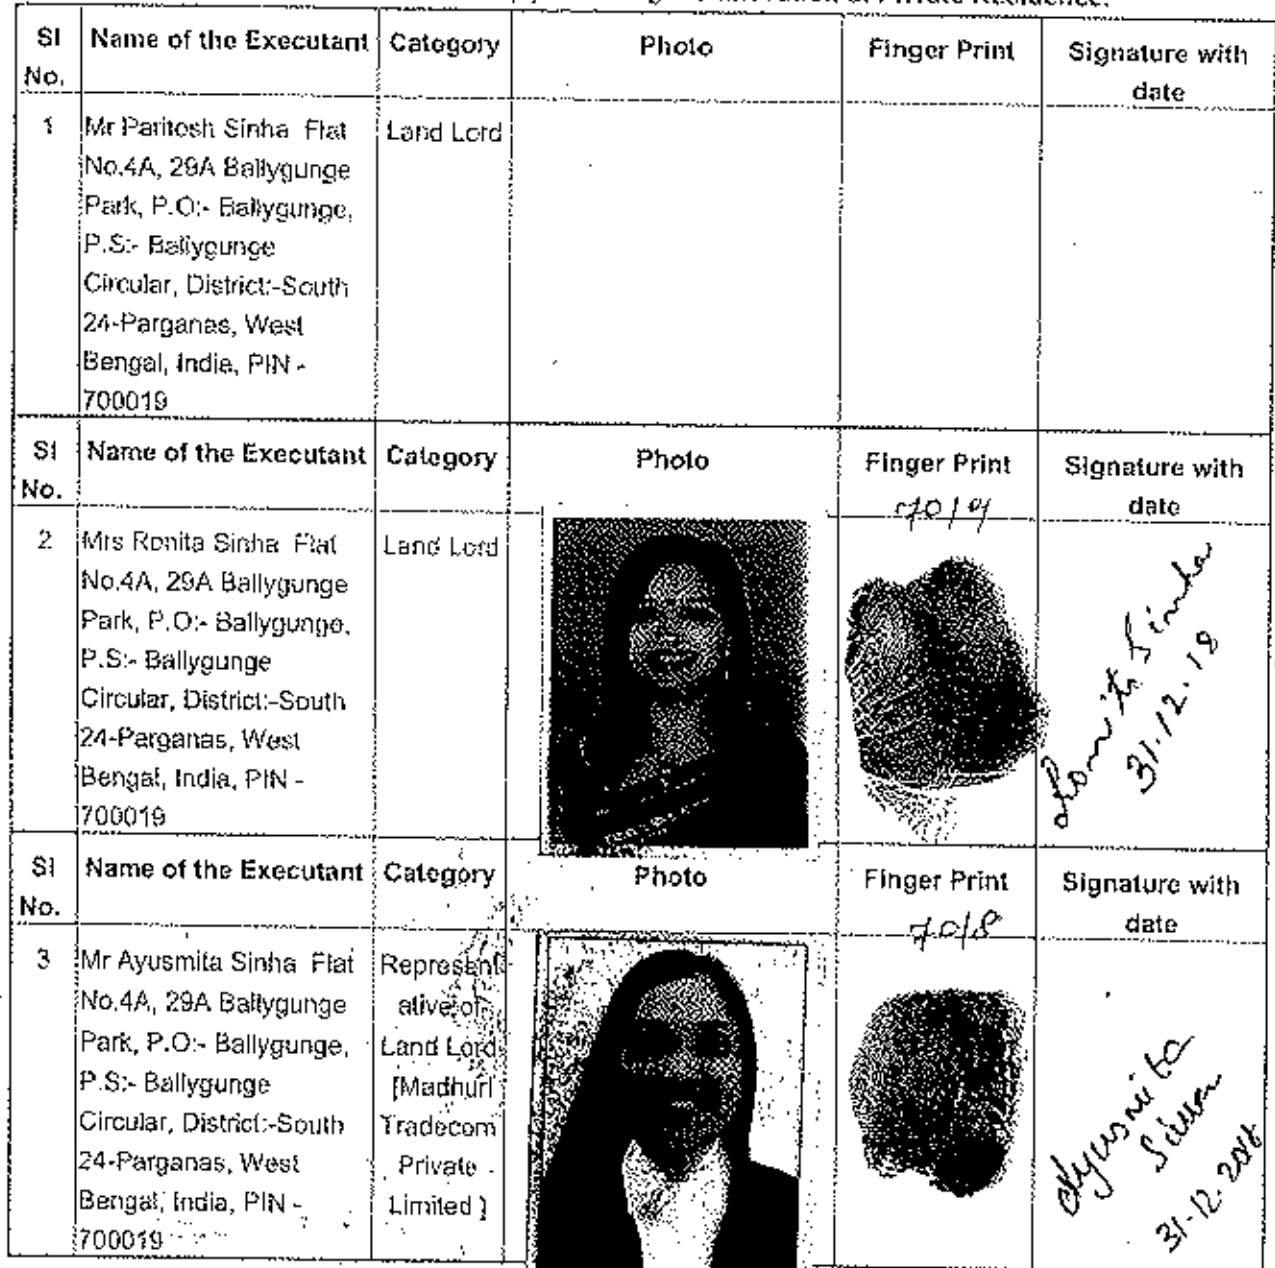 Private Residence.
Sl
No.
Name of the Executant
Category
Photo
Finger Print
Signature with
date
1
Mr Paritosh Sinha Flat
No.4A, 29A Ballygunge
Park, P.O:- Ballygunge,
P.S:- Ballygunge
Circular, District:-South
24-Parganas, West
Bengal, India, PIN -
700019
Land Lord
Sl
No.
Name of the Executant
Category
Photo
Finger Print
Signature with
date
2
Mrs Ronita Sinha Flat
No.4A, 29A Ballygunge
Park, P.O:- Ballygunge,
P.S:- Ballygunge
Circular, District:-South
24-Parganas, West
Bengal, India, PIN -
700019
Land Lord
7019
Sinha
31.12.18
Sl
No.
Name of the Executant
Category
Photo
Finger Print
Signature with
date
3
Mr Ayusmita Sinha Flat
No.4A, 29A Ballygunge
Park, P.O:- Ballygunge,
P.S:- Ballygunge
Circular, District:-South
24-Parganas, West
Bengal, India, PIN -
700019
Represent
ative of
Land Lord
[Madhuri
Tradecom
Private
Limited ]
7018
Ayusmita
Sinha
31-12-2018